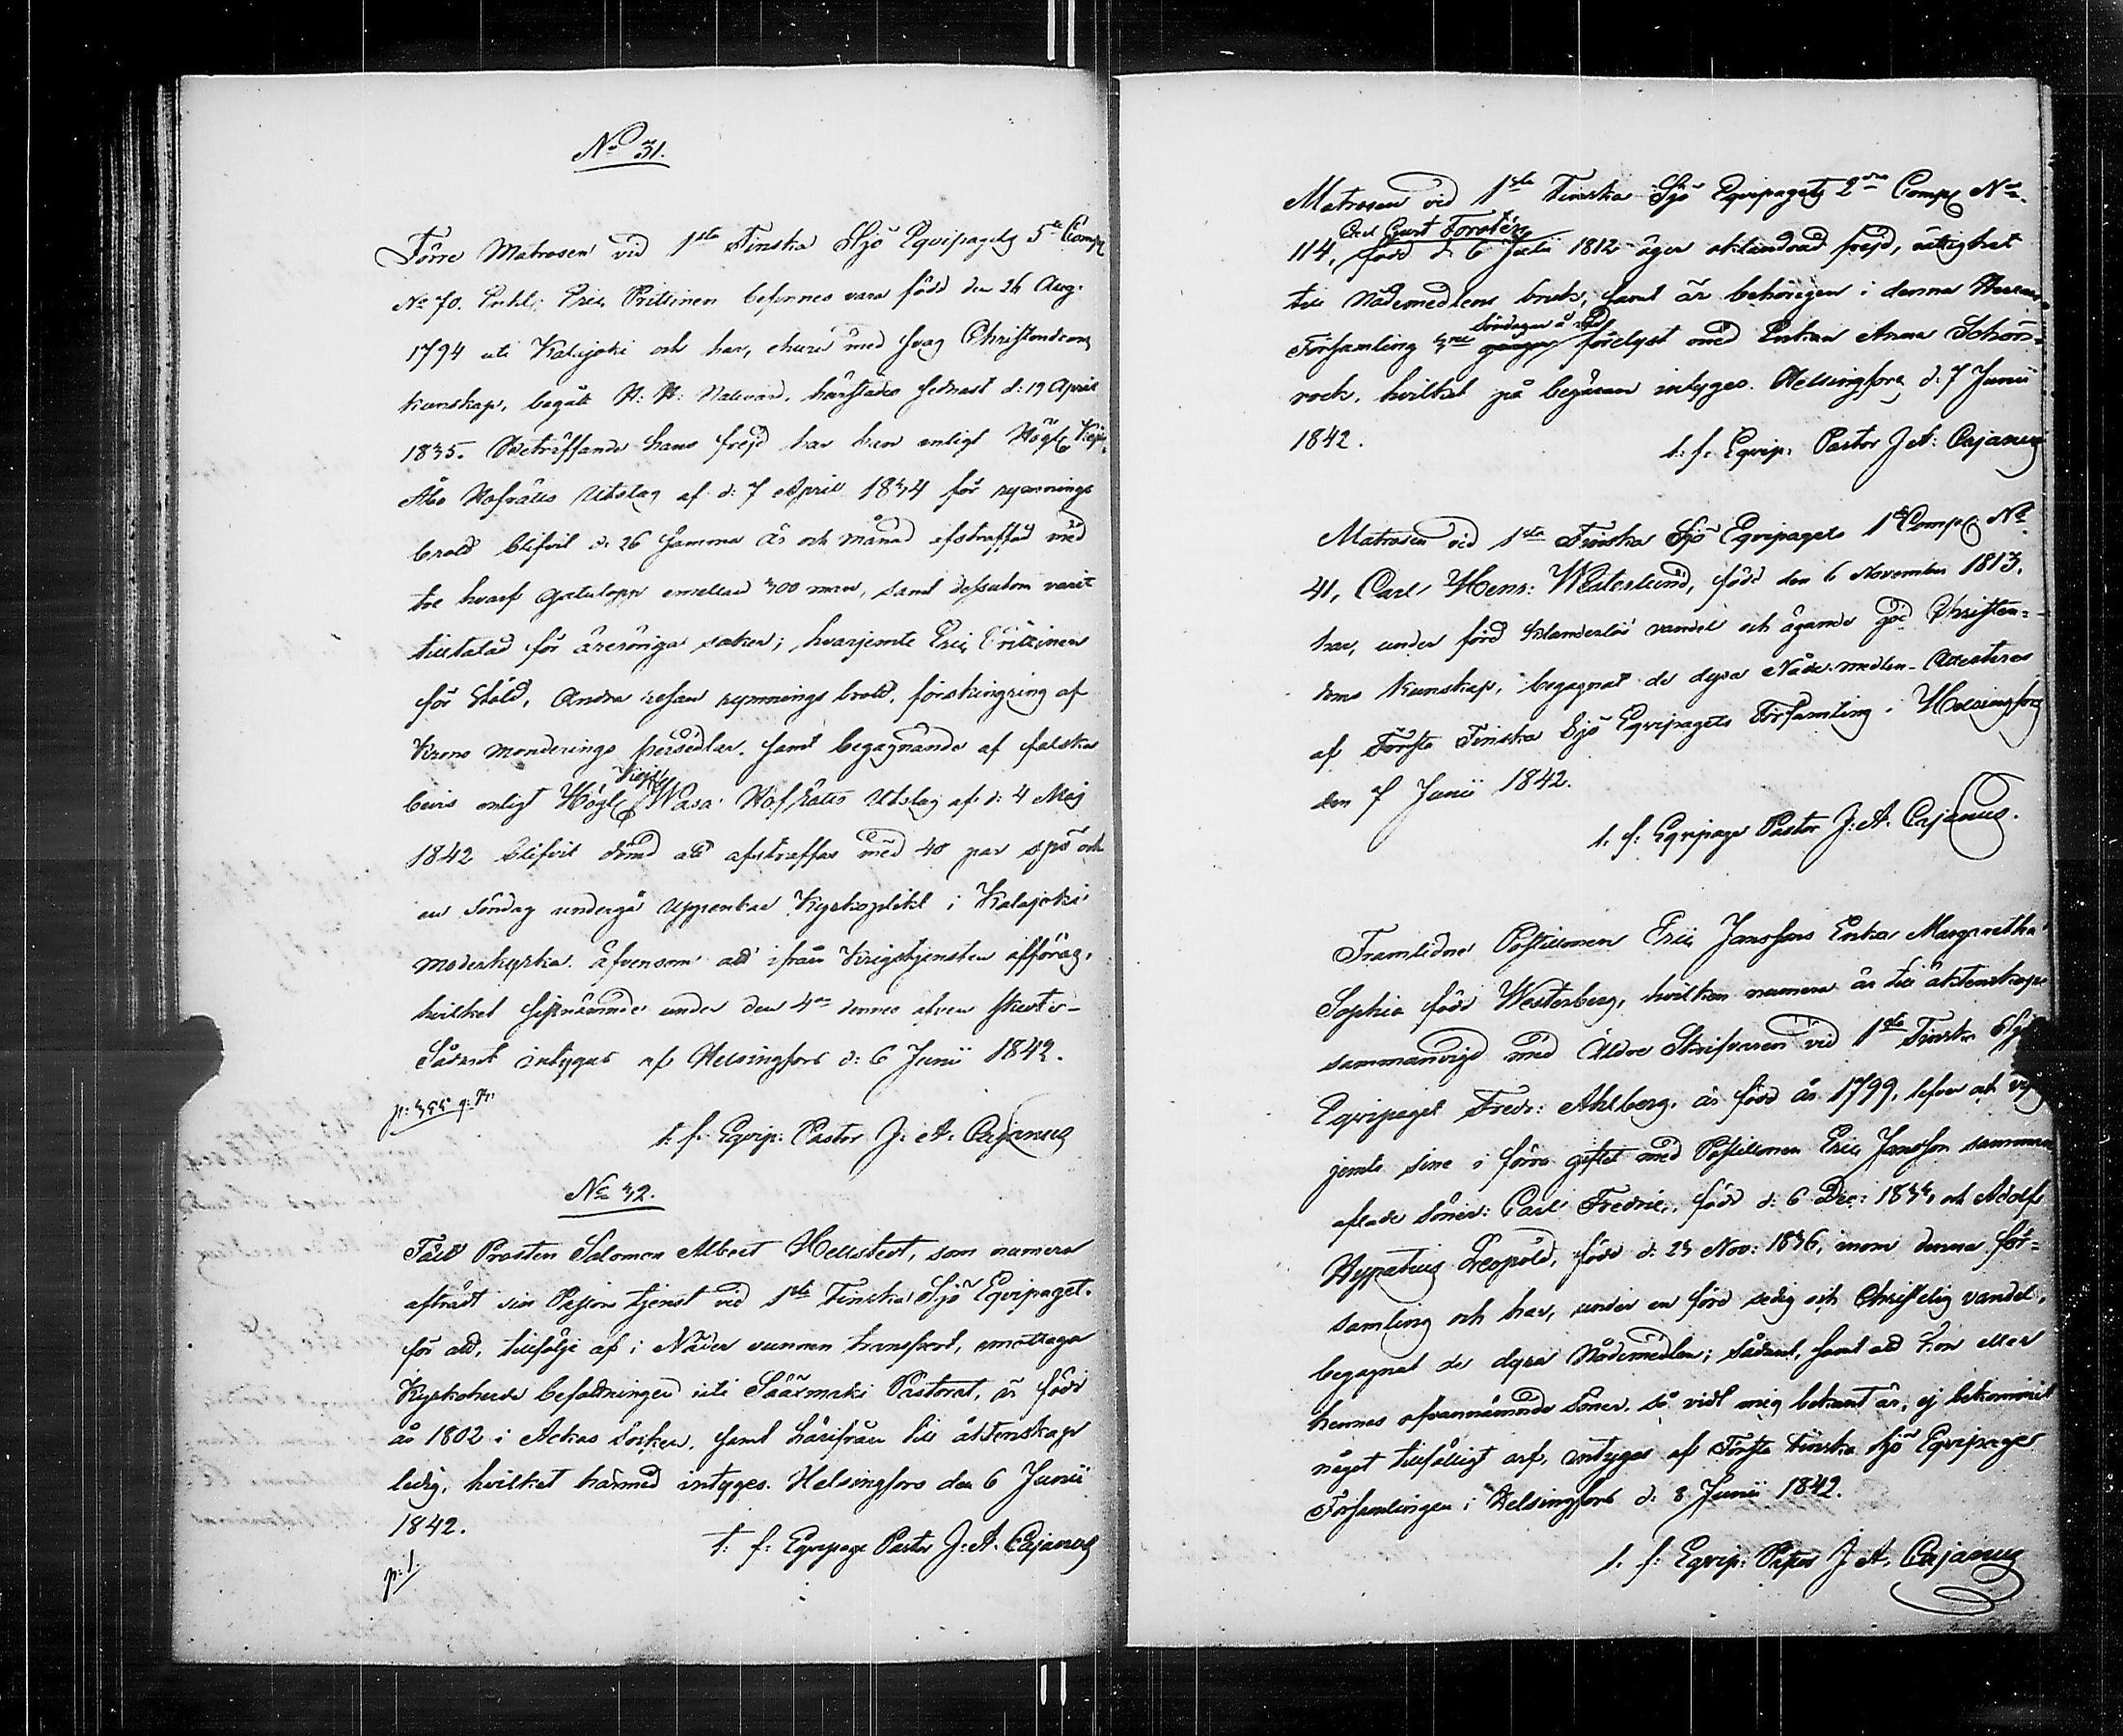 No 31.
Förre Matrosen vid 1sta Finska Sjö Eqvipagets 5te Comp
No 70. Eric Pritinen befinnes vara född den 26 Aug.
1794 uti Kalajoki och har, ehuru med svag Christendoms
kunskap, begått H: H: Nattvard, härstädes sednast d: 19 April
1835. Beträffande hans frejd har han enligt Högl. Kejs.
Åbo Hofrätts Utslag af d: 7 April 1834 för rymnings
brott blifvit d: 26 samma år och månad afstraffad med
tre hvarf gatulopp emellan 300 man, samt dessutom varit
tilltalad för äreröriga saker; hvarjemte Eric Pritinen
för stöld, andra resan rymnings brott, förskingring af
Krono Monderings persedlar, samt begagnande af falska
bevis enligt Högl. Kejs. Wasa Hofrätts Utslag af d: 4 Maj
1842 blifvit dömd att afstraffas med 40 par spö och
en Söndag undergå Uppenbar Kyrkoplikt i Kalajoki
moderkyrka. äfvensom att ifrån Krigstjensten afföras,
hvilket sistnämnde under den 4de dennes äfven skett -
Sådant intygas af Helsingfors d: 6 Junii 1842.
t. f. Eqvip: Pastor J: A: Cajanus
No 32.
Fält Prosten Salomon Albert Hellstedt, som numera
afträdt sin Pastors tjenst vid 1sta Finska Sjö Eqvipaget.
för att, tillfölje af i Nåder vunnen transport, emottaga
Kyrkoherde befattningen uti Sääxmäki Pastorat, är född
år 1802 i Ackas Socken, samt härifrån till äktenskap
ledig, hvilket härmed intyges. Helsingfors den 6 Junii
1842.
t: f: Eqvipage Pastor J: A. Cajanus
p: 1.
Matrosen vid 1sta Finska Sjö Eqvipagets 2dra Comp No
Carl Gust Forstén
114, född d: 6 Julii 1812 äger oklandrad frejd, rättighet
till Nådemedlens bruk, samt är behörigen i denna
Söndagar å rad
Församling gångor förelyst med Enkan Anna Schön-
rock, hvilket på begäran intyges. Helsingfors d: 7 Junii
1842.
t: f. Eqvip: Pastor J A: Cajanus
Matrosen vid 1sta Finska Sjö Eqvipagets 1sta Comp No
41, Carl Henr: Westerlund, född den 6 November 1813,
har, under förd klanderlös vandel och ägande god Christen-
doms kunskap, begagnat de dyra Nåde-medlen - Attesteras
af Första Finska Sjö Eqvipagets Församling i Helsingfors
den 7 Junii 1842.
t. f: Eqvipage Pastor J: A. Cajanus.
Framlidne Postillionen Eric Janssons Enka Margaretha
Sophia född Westerberg, hvilken numera är till äktenskap
sammanvigd med Äldre Skrifvaren vid 1sta Finska Sjö
Eqvipaget Fredr: Ahlberg, är född år 1799, lefver och
jemte sine i förra giftet med Postillionen Eric Jansson samman
aflade söner: Carl Fredric, född d: 6 Dec: 1833, och Adolf
Hypatius Leopold, född d: 23 Nov: 1836, inom denna för-
samling och har, under en förd sedig och Christelig vandel,
begagnat de dyra Nådemedlen; sådant, samt att hon eller
hennes ofvannämnde söner, så vidt mig bekant är, ej bekommit
något tillfälligt arf, intygas af Första Finska Sjö Eqvipages
Församlingen i Helsingfors d: 8 Junii 1842.
t. f: Eqvip: Pastor J A. Cajanus